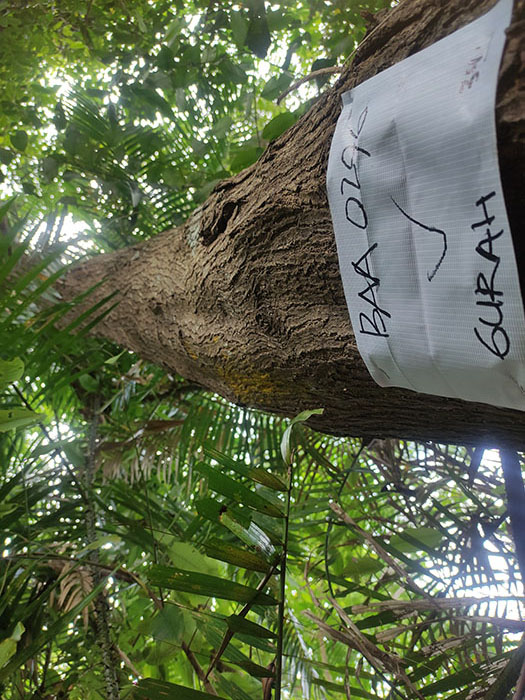 BAA 0296
✓
GURAH